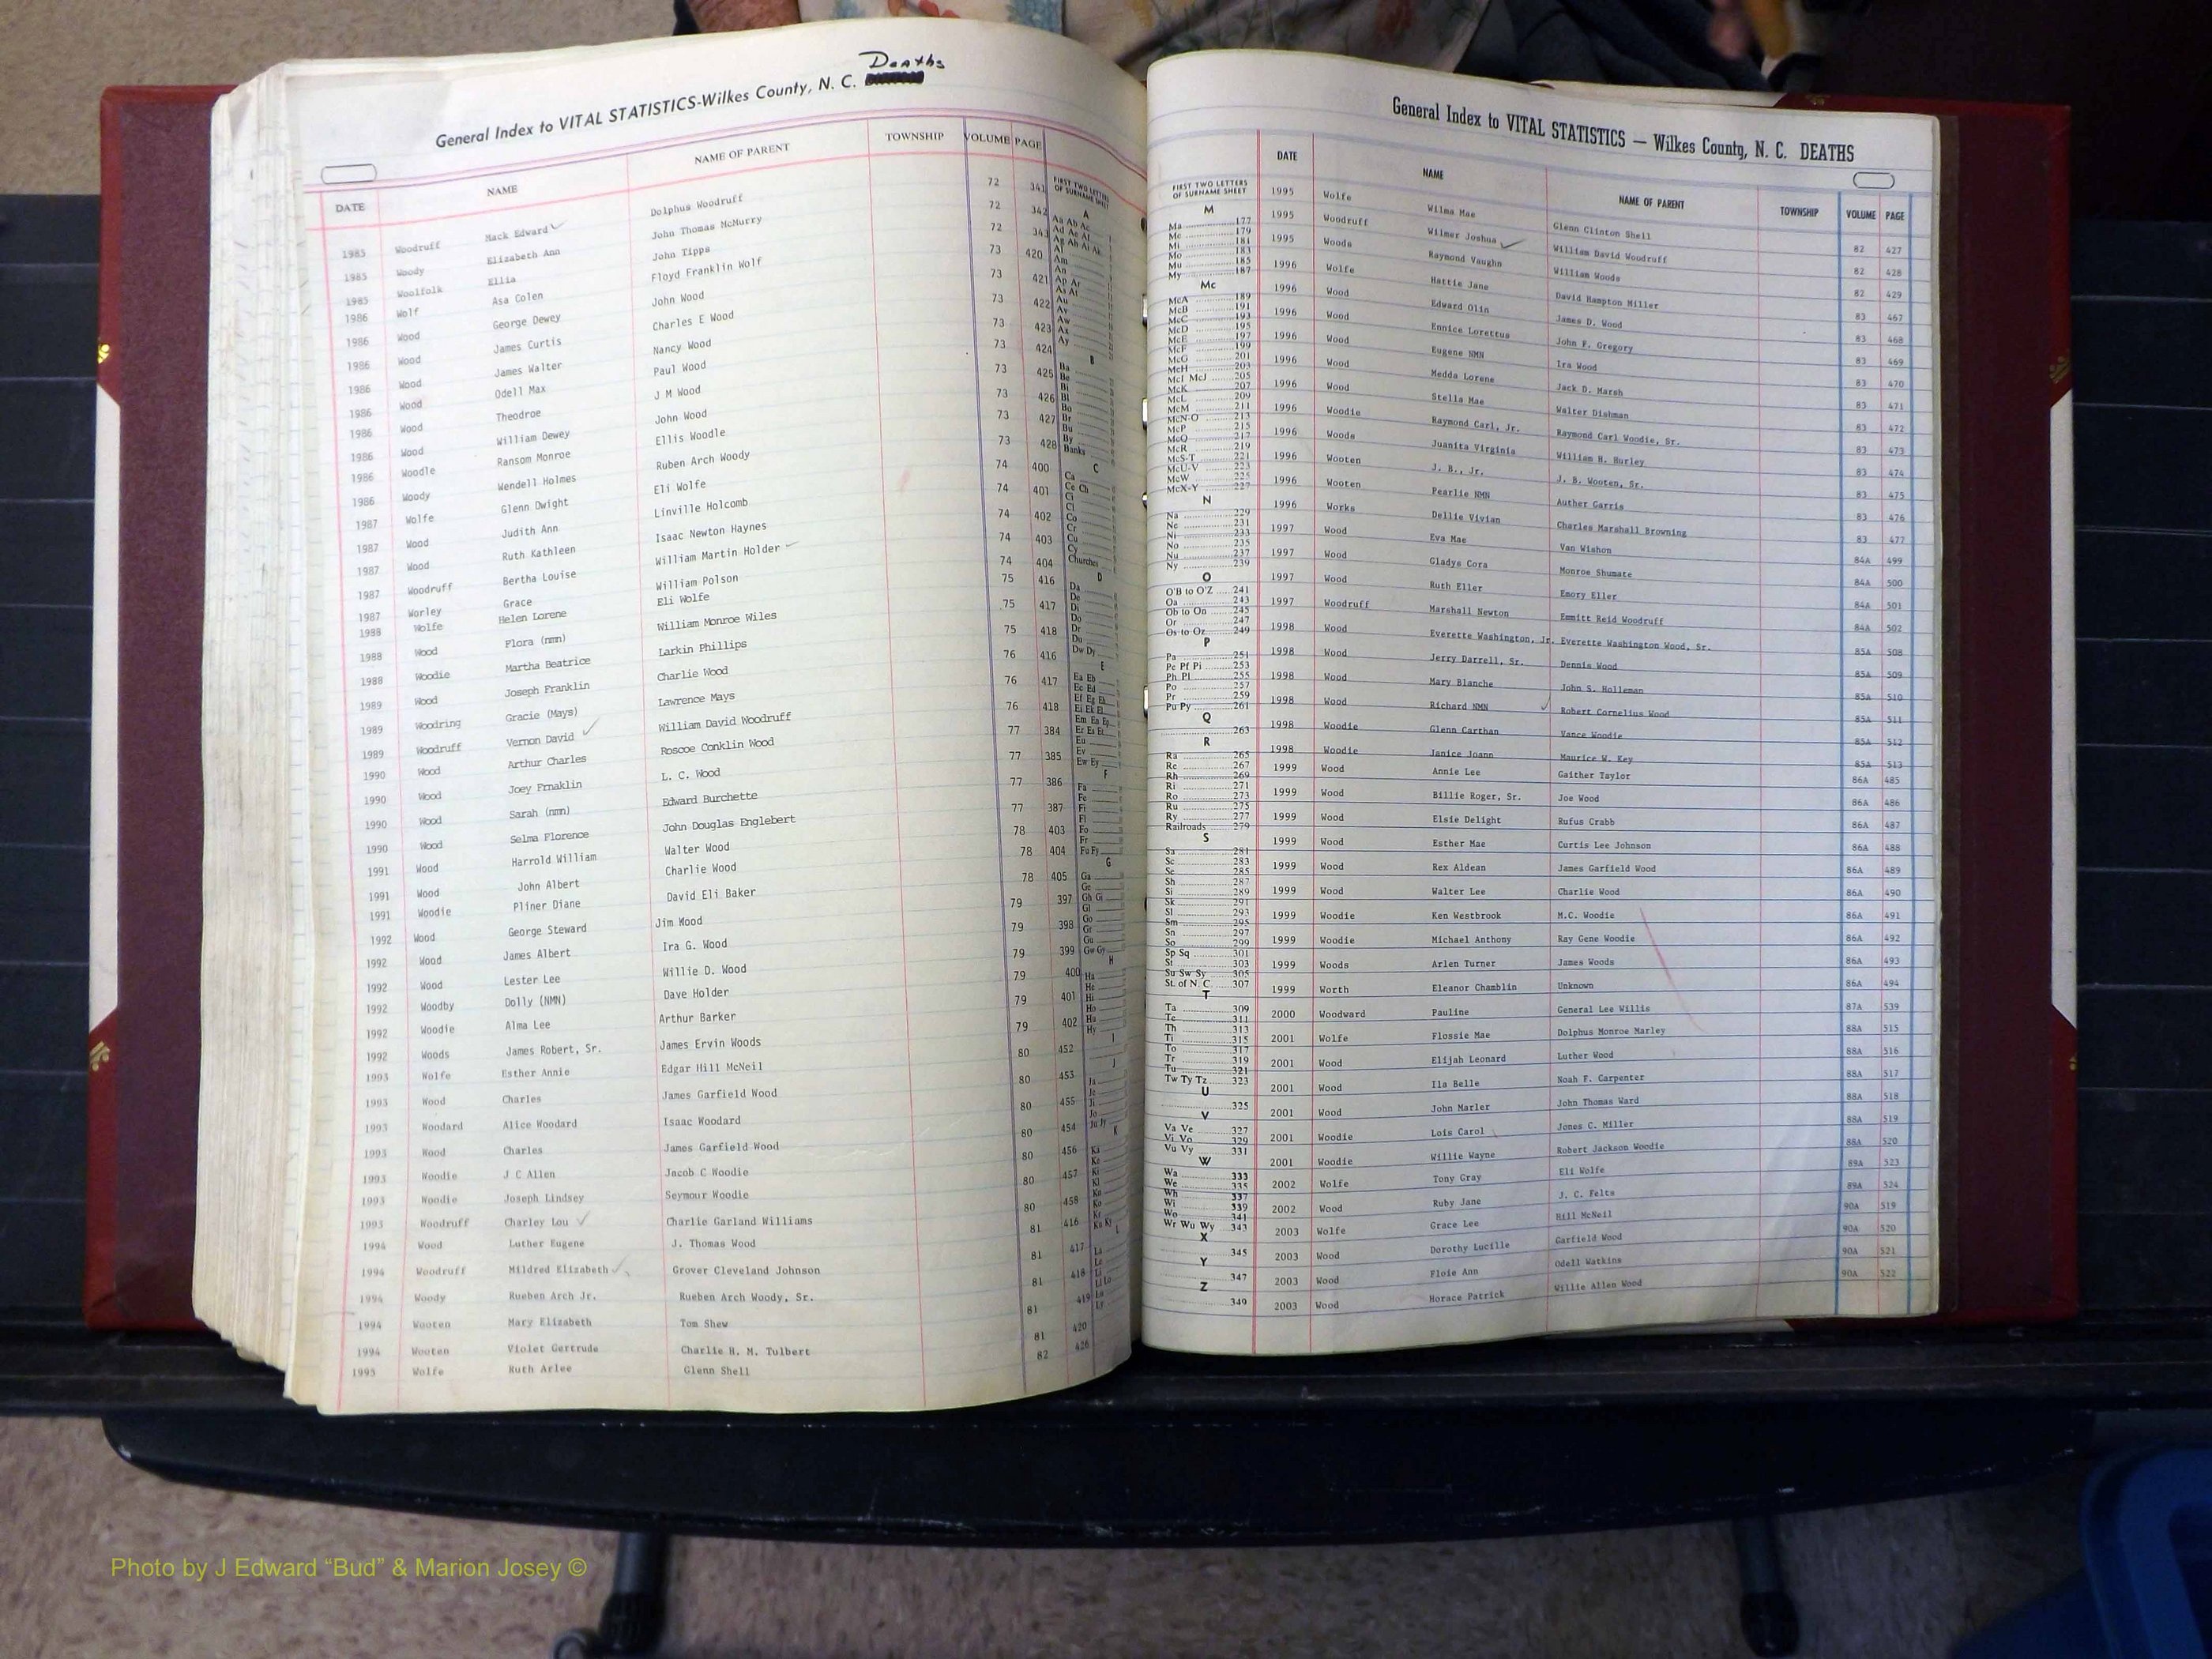 Deaths
General Index to VITAL STATISTICS-Wilkes County, N. C.
DATE NAME NAME OF PARENT TOWNSHIP VOLUME PAGE
1985 Woodruff Mack Edward ✓ Dolphus Woodruff 72 341
1985 Woody Elizabeth Ann John Thomas McMurry 72 342
1985 Woolfolk Ellia John Tipps 72 343
1986 Wolf Asa Colen Floyd Franklin Wolf 73 420
1986 Wood George Dewey John Wood 73 421
1986 Wood James Curtis Charles E Wood 73 422
1986 Wood James Walter Nancy Wood 73 423
1986 Wood Odell Max Paul Wood 73 424
1986 Wood Theodroe J M Wood 73 425
1986 Wood William Dewey John Wood 73 426
1986 Woodle Ransom Monroe Ellis Woodle 73 427
1986 Woody Wendell Holmes Ruben Arch Woody 73 428
1987 Wolfe Glenn Dwight Eli Wolfe 74 400
1987 Wood Judith Ann Linville Holcomb 74 401
1987 Wood Ruth Kathleen Isaac Newton Haynes 74 402
1987 Woodruff Bertha Louise William Martin Holder ✓ 74 403
1987 Worley Grace William Polson 74 404
1988 Wolfe Helen Lorene Eli Wolfe 75 416
1988 Wood Flora (nmn) William Monroe Wiles 75 417
1988 Woodie Martha Beatrice Larkin Phillips 75 418
1989 Wood Joseph Franklin Charlie Wood 76 416
1989 Woodring Gracie (Mays) Lawrence Mays 76 417
1989 Woodruff Vernon David ✓ William David Woodruff 76 418
1990 Wood Arthur Charles Roscoe Conklin Wood 77 384
1990 Wood Joey Frnaklin L. C. Wood 77 385
1990 Wood Sarah (nmn) Edward Burchette 77 386
1990 Wood Selma Florence John Douglas Englebert 77 387
1991 Wood Harrold William Walter Wood 78 403
1991 Wood John Albert Charlie Wood 78 404
1991 Woodie Pliner Diane David Eli Baker 78 405
1992 Wood George Steward Jim Wood 79 397
1992 Wood James Albert Ira G. Wood 79 398
1992 Wood Lester Lee Willie D. Wood 79 399
1992 Woodby Dolly (NMN) Dave Holder 79 400
1992 Woodie Alma Lee Arthur Barker 79 401
1992 Woods James Robert, Sr. James Ervin Woods 79 402
1993 Wolfe Esther Annie Edgar Hill McNeil 80 452
1993 Wood Charles James Garfield Wood 80 453
1993 Woodard Alice Woodard Isaac Woodard 80 455
1993 Wood Charles James Garfield Wood 80 454
1993 Woodie J C Allen Jacob C Woodie 80 456
1993 Woodie Joseph Lindsey Seymour Woodie 80 457
1993 Woodruff Charley Lou ✓ Charlie Garland Williams 80 458
1994 Wood Luther Eugene J. Thomas Wood 81 416
1994 Woodruff Mildred Elizabeth ✓ Grover Cleveland Johnson 81 417
1994 Woody Rueben Arch Jr. Rueben Arch Woody, Sr. 81 418
1994 Wooten Mary Elizabeth Tom Shew 81 419
1994 Wooten Violet Gertrude Charlie H. M. Tulbert 81 420
1995 Wolfe Ruth Arlee Glenn Shell 82 426
FIRST TWO LETTERS
OF SURNAME SHEET
A
Aa Ab Ac
Ad Ae Af
Ag Ah Ai Ak
Al
Am
An
Ap Ar
As At
Au
Av
Aw
Ax
Ay
B
Ba
Be
Bi
Bl
Bo
Br
Bu
By
Banks
C
Ca
Ce Ch
Ci
Cl
Co
Cr
Cu
Cy
Churches
D
Da
De
Di
Do
Dr
Du
Dw Dy
E
Ea Eb
Ec Ed
Ef Eg Eh
Ei Ek El
Em En Ep
Er Es Et
Eu
Ev
Ew Ey
F
Fa
Fe
Fi
Fl
Fo
Fr
Fu Fy
G
Ga
Ge
Gh Gi
Gl
Go
Gr
Gu
Gw Gy
H
Ha
He
Hi
Ho
Hu
Hy
I
J
Ja
Je
Ji
Jo
Ju Jy
K
Ka
Ke
Ki
Kl
Kn
Ko
Kr
Ku Ky
L
La
Le
Li
Ll Lo
Lu
Ly
General Index to VITAL STATISTICS — Wilkes County, N. C. DEATHS
FIRST TWO LETTERS
OF SURNAME SHEET
M
Ma 177
Me 179
Mi 181
Mo 183
Mu 185
My 187
Mc
McA 189
McB 191
McC 193
McD 195
McE 197
McF 199
McG 201
McH 203
McI McJ 205
McK 207
McL 209
McM 211
McN-O 213
McP 215
McQ 217
McR 219
McS-T 221
McU-V 223
McW 225
McX-Y 227
N
Na 229
Ne 231
Ni 233
No 235
Nu 237
Ny 239
O
O'B to O'Z 241
Oa 243
Ob to On 245
Or 247
Os to Oz 249
P
Pa 251
Pe Pf Pi 253
Ph Pl 255
Po 257
Pr 259
Pu Py 261
Q
263
R
Ra 265
Re 267
Rh 269
Ri 271
Ro 273
Ru 275
Ry 277
Railroads 279
S
Sa 281
Sc 283
Se 285
Sh 287
Si 289
Sk 291
Sl 293
Sm 295
Sn 297
So 299
Sp Sq 301
St 303
Su Sw Sy 305
St. of N. C. 307
T
Ta 309
Te 311
Th 313
Ti 315
To 317
Tr 319
Tu 321
Tw Ty Tz 323
U
325
V
Va Ve 327
Vi Vo 329
Vu Vy 331
W
Wa 333
We 335
Wh 337
Wi 339
Wo 341
Wr Wu Wy 343
X
345
Y
347
Z
349
DATE NAME NAME OF PARENT TOWNSHIP VOLUME PAGE
1995 Wolfe Wilma Mae Glenn Clinton Shell 82 427
1995 Woodruff Wilmer Joshua ✓ William David Woodruff 82 428
1995 Woods Raymond Vaughn William Woods 82 429
1996 Wolfe Hattie Jane David Hampton Miller 83 467
1996 Wood Edward Olin James D. Wood 83 468
1996 Wood Ennice Lorettus John F. Gregory 83 469
1996 Wood Eugene NMN Ira Wood 83 470
1996 Wood Medda Lorene Jack D. Marsh 83 471
1996 Wood Stella Mae Walter Dishman 83 472
1996 Woodie Raymond Carl, Jr. Raymond Carl Woodie, Sr. 83 473
1996 Woods Juanita Virginia William H. Hurley 83 474
1996 Wooten J. B., Jr. J. B. Wooten, Sr. 83 475
1996 Wooten Pearlie NMN Auther Garris 83 476
1996 Works Dellie Vivian Charles Marshall Browning 83 477
1997 Wood Eva Mae Van Wishon 84A 499
1997 Wood Gladys Cora Monroe Shumate 84A 500
1997 Wood Ruth Eller Emory Eller 84A 501
1997 Woodruff Marshall Newton Emmitt Reid Woodruff 84A 502
1998 Wood Everette Washington, Jr. Everette Washington Wood, Sr. 85A 508
1998 Wood Jerry Darrell, Sr. Dennis Wood 85A 509
1998 Wood Mary Blanche John S. Holleman 85A 510
1998 Wood Richard NMN ✓ Robert Cornelius Wood 85A 511
1998 Woodie Glenn Carthan Vance Woodie 85A 512
1998 Woodie Janice Joann Maurice W. Key 85A 513
1999 Wood Annie Lee Gaither Taylor 86A 485
1999 Wood Billie Roger, Sr. Joe Wood 86A 486
1999 Wood Elsie Delight Rufus Crabb 86A 487
1999 Wood Esther Mae Curtis Lee Johnson 86A 488
1999 Wood Rex Aldean James Garfield Wood 86A 489
1999 Wood Walter Lee Charlie Wood 86A 490
1999 Woodie Ken Westbrook M.C. Woodie 86A 491
1999 Woodie Michael Anthony Ray Gene Woodie 86A 492
1999 Woods Arlen Turner James Woods 86A 493
1999 Worth Eleanor Chamblin Unknown 86A 494
2000 Woodward Pauline General Lee Willis 87A 539
2001 Wolfe Flossie Mae Dolphus Monroe Marley 88A 515
2001 Wood Elijah Leonard Luther Wood 88A 516
2001 Wood Ila Belle Noah F. Carpenter 88A 517
2001 Wood John Marler John Thomas Ward 88A 518
2001 Woodie Lois Carol Jones C. Miller 88A 519
2001 Woodie Willie Wayne Robert Jackson Woodie 88A 520
2002 Wolfe Tony Gray Eli Wolfe 89A 523
2002 Wood Ruby Jane J. C. Felts 89A 524
2003 Wolfe Grace Lee Hill McNeil 90A 519
2003 Wood Dorothy Lucille Garfield Wood 90A 520
2003 Wood Floie Ann Odell Watkins 90A 521
2003 Wood Horace Patrick Willie Allen Wood 90A 522
Photo by J Edward “Bud” & Marion Josey ©